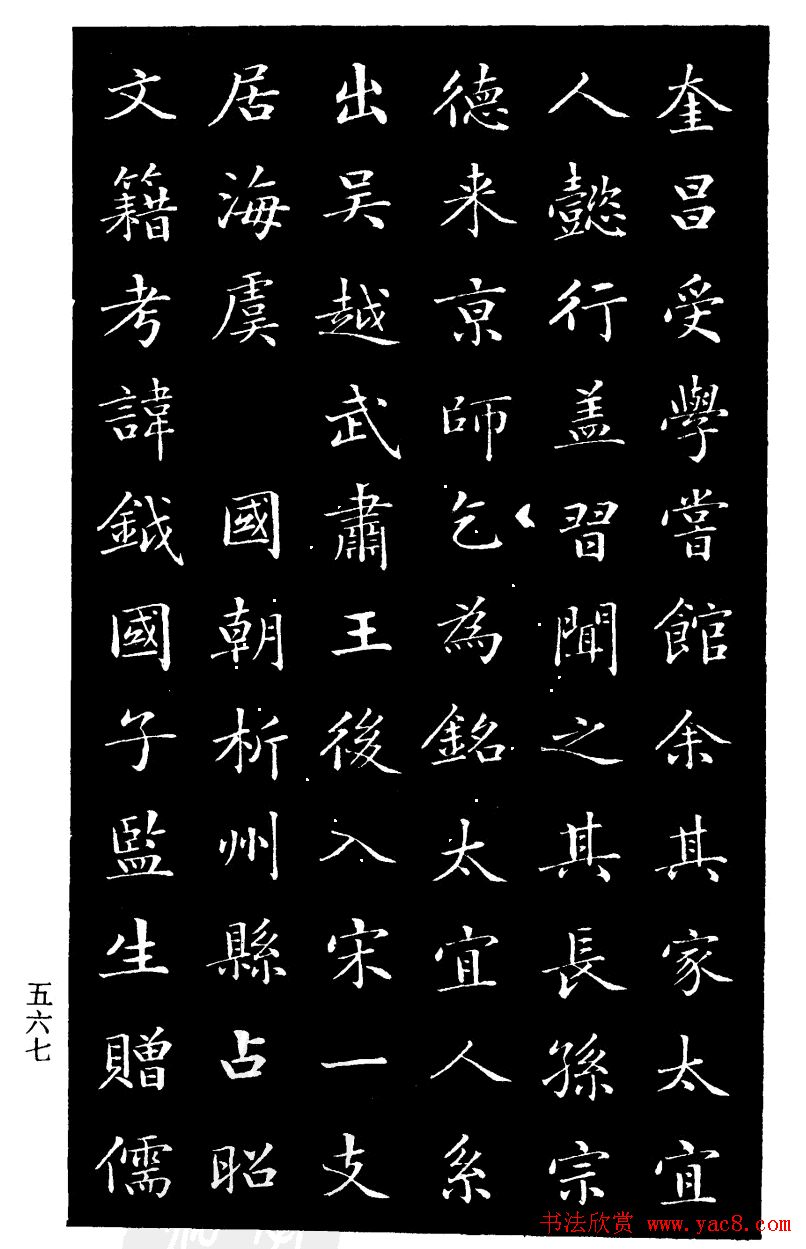 奎昌受學嘗館余其家太宜
人懿行盖習聞之其長孫宗
德来京師乞為銘太宜人系
出吴越武肅王後入宋一支
居海虞 國朝析州縣占昭
文籍考諱鉞國子監生贈儒
五六七
书法欣赏 www.yac8.com